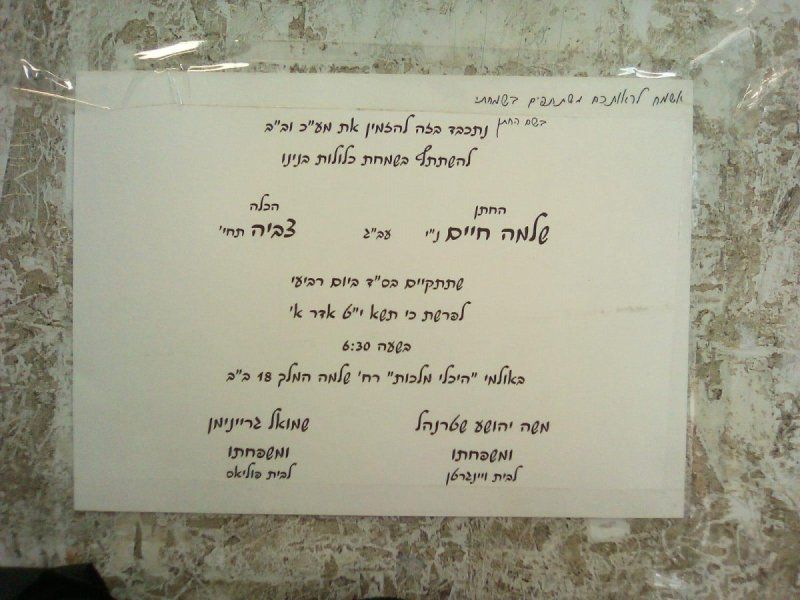 אשמח לראותכם משתתפים בשמחתי
בשם החתן
נתכבד בזה להזמין את מע"כ וב"ב
להשתתף בשמחת כלולות בנינו
החתן הכלה
שלמה חיים ני"ו עב"ג צביה תחי'
שתתקיים בס"ד ביום רביעי
לפרשת כי תשא י"ט אדר א'
בשעה 6:30
באולמי "היכלי מלכות" רח' שלמה המלך 18 ב"ב
משה יהושע שטרנהל שמואל גריינימן
ומשפחתו ומשפחתו
לבית ויינגרטן לבית פוליאס